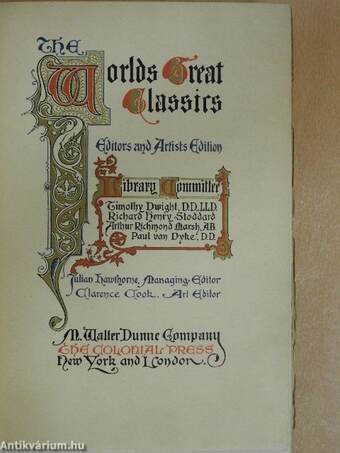 The
Worlds Great
Classics
Editors and Artists Edition
Library Committee
Timothy Dwight, D.D. LL.D.
Richard Henry Stoddard
Arthur Richmond Marsh, A.B.
Paul van Dyke, D.D.
Julian Hawthorne, Managing Editor
Clarence Cook, Art Editor
M. Walter Dunne Company
The Colonial Press
New York and London.
Antikvárium.hu